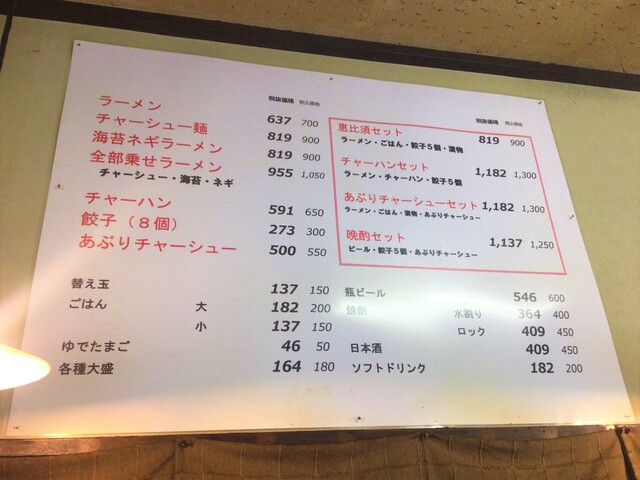 税抜価格 税込価格
ラーメン 637 700
チャーシュー麺 819 900
海苔ネギラーメン 819 900
全部乗せラーメン 955 1,050
チャーシュー・海苔・ネギ
チャーハン 591 650
餃子（８個） 273 300
あぶりチャーシュー 500 550
替え玉 137 150
ごはん 大 182 200
小 137 150
ゆでたまご 46 50
各種大盛 164 180
税抜価格 税込価格
恵比須セット 819 900
ラーメン・ごはん・餃子５個・漬物
チャーハンセット 1,182 1,300
ラーメン・チャーハン・餃子５個
あぶりチャーシューセット 1,182 1,300
ラーメン・ごはん・漬物・あぶりチャーシュー
晩酌セット 1,137 1,250
ビール・餃子５個・あぶりチャーシュー
瓶ビール 546 600
焼酎 水割り 364 400
ロック 409 450
日本酒 409 450
ソフトドリンク 182 200